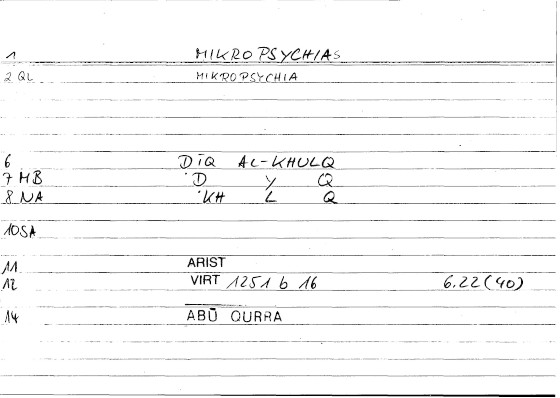 1 MIKROPSYCHIAS
2 QL MIKROPSYCHIA
6 DĪQ AL-KHULQ
7 MB 'D Y Q
8 NA 'KH L Q
10 SA
11 ARIST
12 VIRT 1251 b 16 6.22(40)
14 ABŪ QURRA